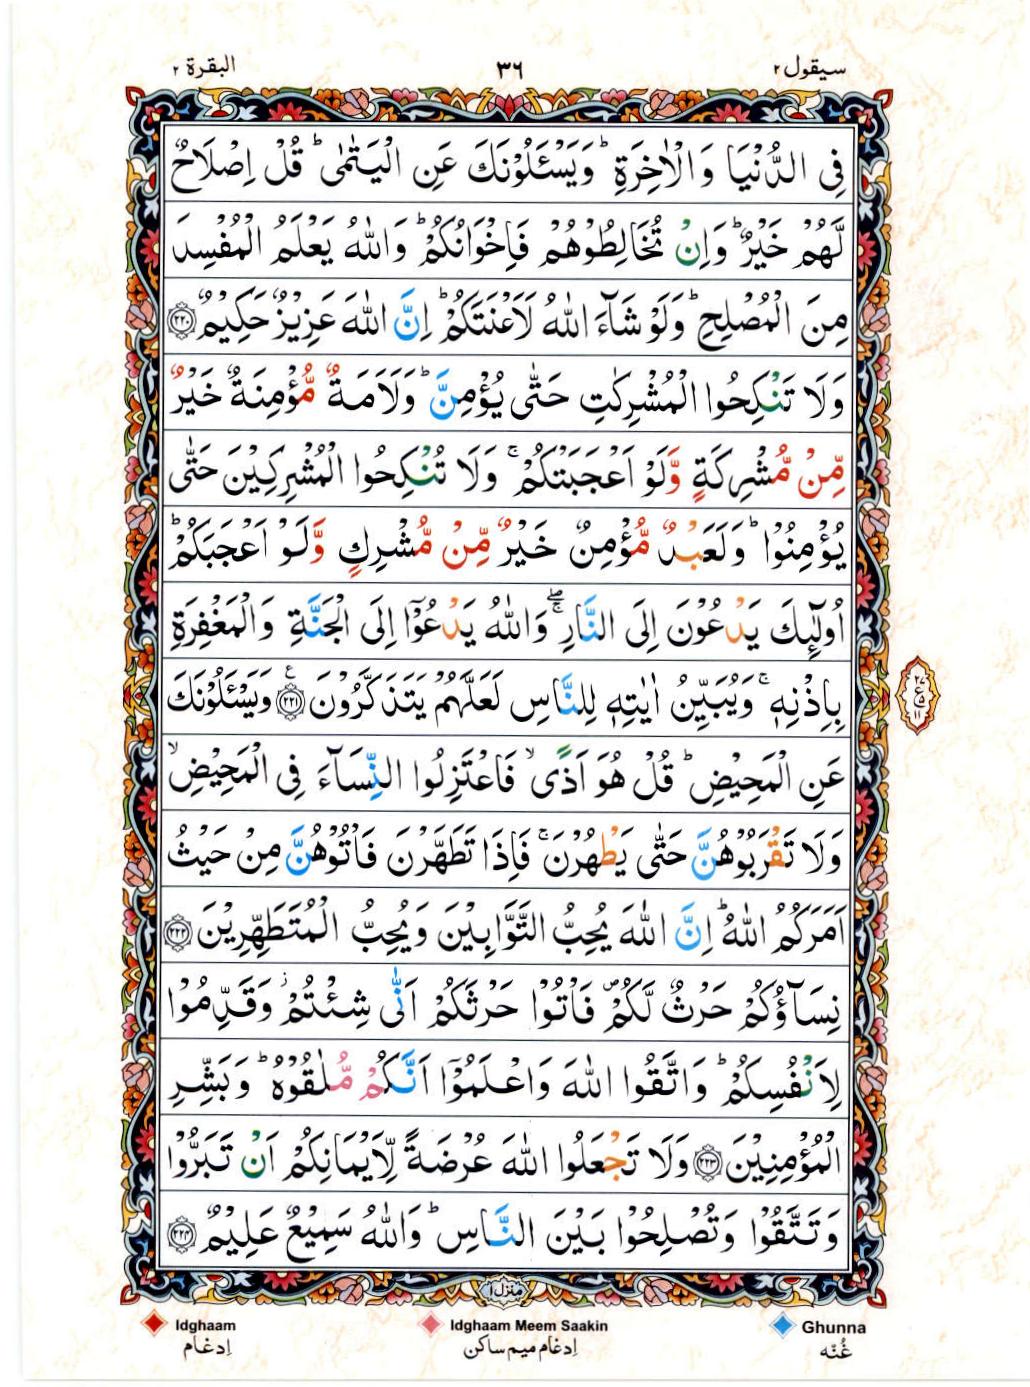 سيقول ٢ ٣٦ البقرة ٢
فِى الدُّنْيَا وَ الْاٰخِرَةِ ؕ وَيَسْـَٔلُوْنَكَ عَنِ الْيَتٰمٰى ؕ قُلْ اِصْلَاحٌ
لَّهُمْ خَيْرٌ ؕ وَاِنْ تُخَالِطُوْهُمْ فَاِخْوَانُكُمْ ؕ وَاللّٰهُ يَعْلَمُ الْمُفْسِدَ
مِنَ الْمُصْلِحِ ؕ وَلَوْ شَآءَ اللّٰهُ لَاَعْنَتَكُمْ ؕ اِنَّ اللّٰهَ عَزِيْزٌ حَكِيْمٌ ﴿۲۲۰﴾
وَلَا تَنْكِحُوا الْمُشْرِكٰتِ حَتّٰى يُؤْمِنَّ ؕ وَلَاَمَةٌ مُّؤْمِنَةٌ خَيْرٌ
مِّنْ مُّشْرِكَةٍ وَّلَوْ اَعْجَبَتْكُمْ ۚ وَلَا تُنْكِحُوا الْمُشْرِكِيْنَ حَتّٰى
يُؤْمِنُوْا ؕ وَلَعَبْدٌ مُّؤْمِنٌ خَيْرٌ مِّنْ مُّشْرِكٍ وَّلَوْ اَعْجَبَكُمْ ؕ
اُولٰٓئِكَ يَدْعُوْنَ اِلَى النَّارِ ۖۚ وَاللّٰهُ يَدْعُوْٓا اِلَى الْجَنَّةِ وَالْمَغْفِرَةِ
بِاِذْنِهٖ ۚ وَيُبَيِّنُ اٰيٰتِهٖ لِلنَّاسِ لَعَلَّهُمْ يَتَذَكَّرُوْنَ ﴿۲۲۱﴾ ع وَيَسْـَٔلُوْنَكَ
عَنِ الْمَحِيْضِ ؕ قُلْ هُوَ اَذًى ۙ فَاعْتَزِلُوا النِّسَآءَ فِى الْمَحِيْضِ ۙ
وَلَا تَقْرَبُوْهُنَّ حَتّٰى يَطْهُرْنَ ۚ فَاِذَا تَطَهَّرْنَ فَاْتُوْهُنَّ مِنْ حَيْثُ
اَمَرَكُمُ اللّٰهُ ؕ اِنَّ اللّٰهَ يُحِبُّ التَّوَّابِيْنَ وَيُحِبُّ الْمُتَطَهِّرِيْنَ ﴿۲۲۲﴾
نِسَآؤُكُمْ حَرْثٌ لَّكُمْ ۪ فَاْتُوْا حَرْثَكُمْ اَنّٰى شِئْتُمْ ؗ وَقَدِّمُوْا
لِاَنْفُسِكُمْ ؕ وَاتَّقُوا اللّٰهَ وَاعْلَمُوْٓا اَنَّكُمْ مُّلٰقُوْهُ ؕ وَبَشِّرِ
الْمُؤْمِنِيْنَ ﴿۲۲۳﴾ وَلَا تَجْعَلُوا اللّٰهَ عُرْضَةً لِّاَيْمَانِكُمْ اَنْ تَبَرُّوْا
وَتَتَّقُوْا وَتُصْلِحُوْا بَيْنَ النَّاسِ ؕ وَاللّٰهُ سَمِيْعٌ عَلِيْمٌ ﴿۲۲۴﴾
منزل ١
Idghaam Idghaam Meem Saakin Ghunna
اِدغام اِدغام میم ساکن غُنّه